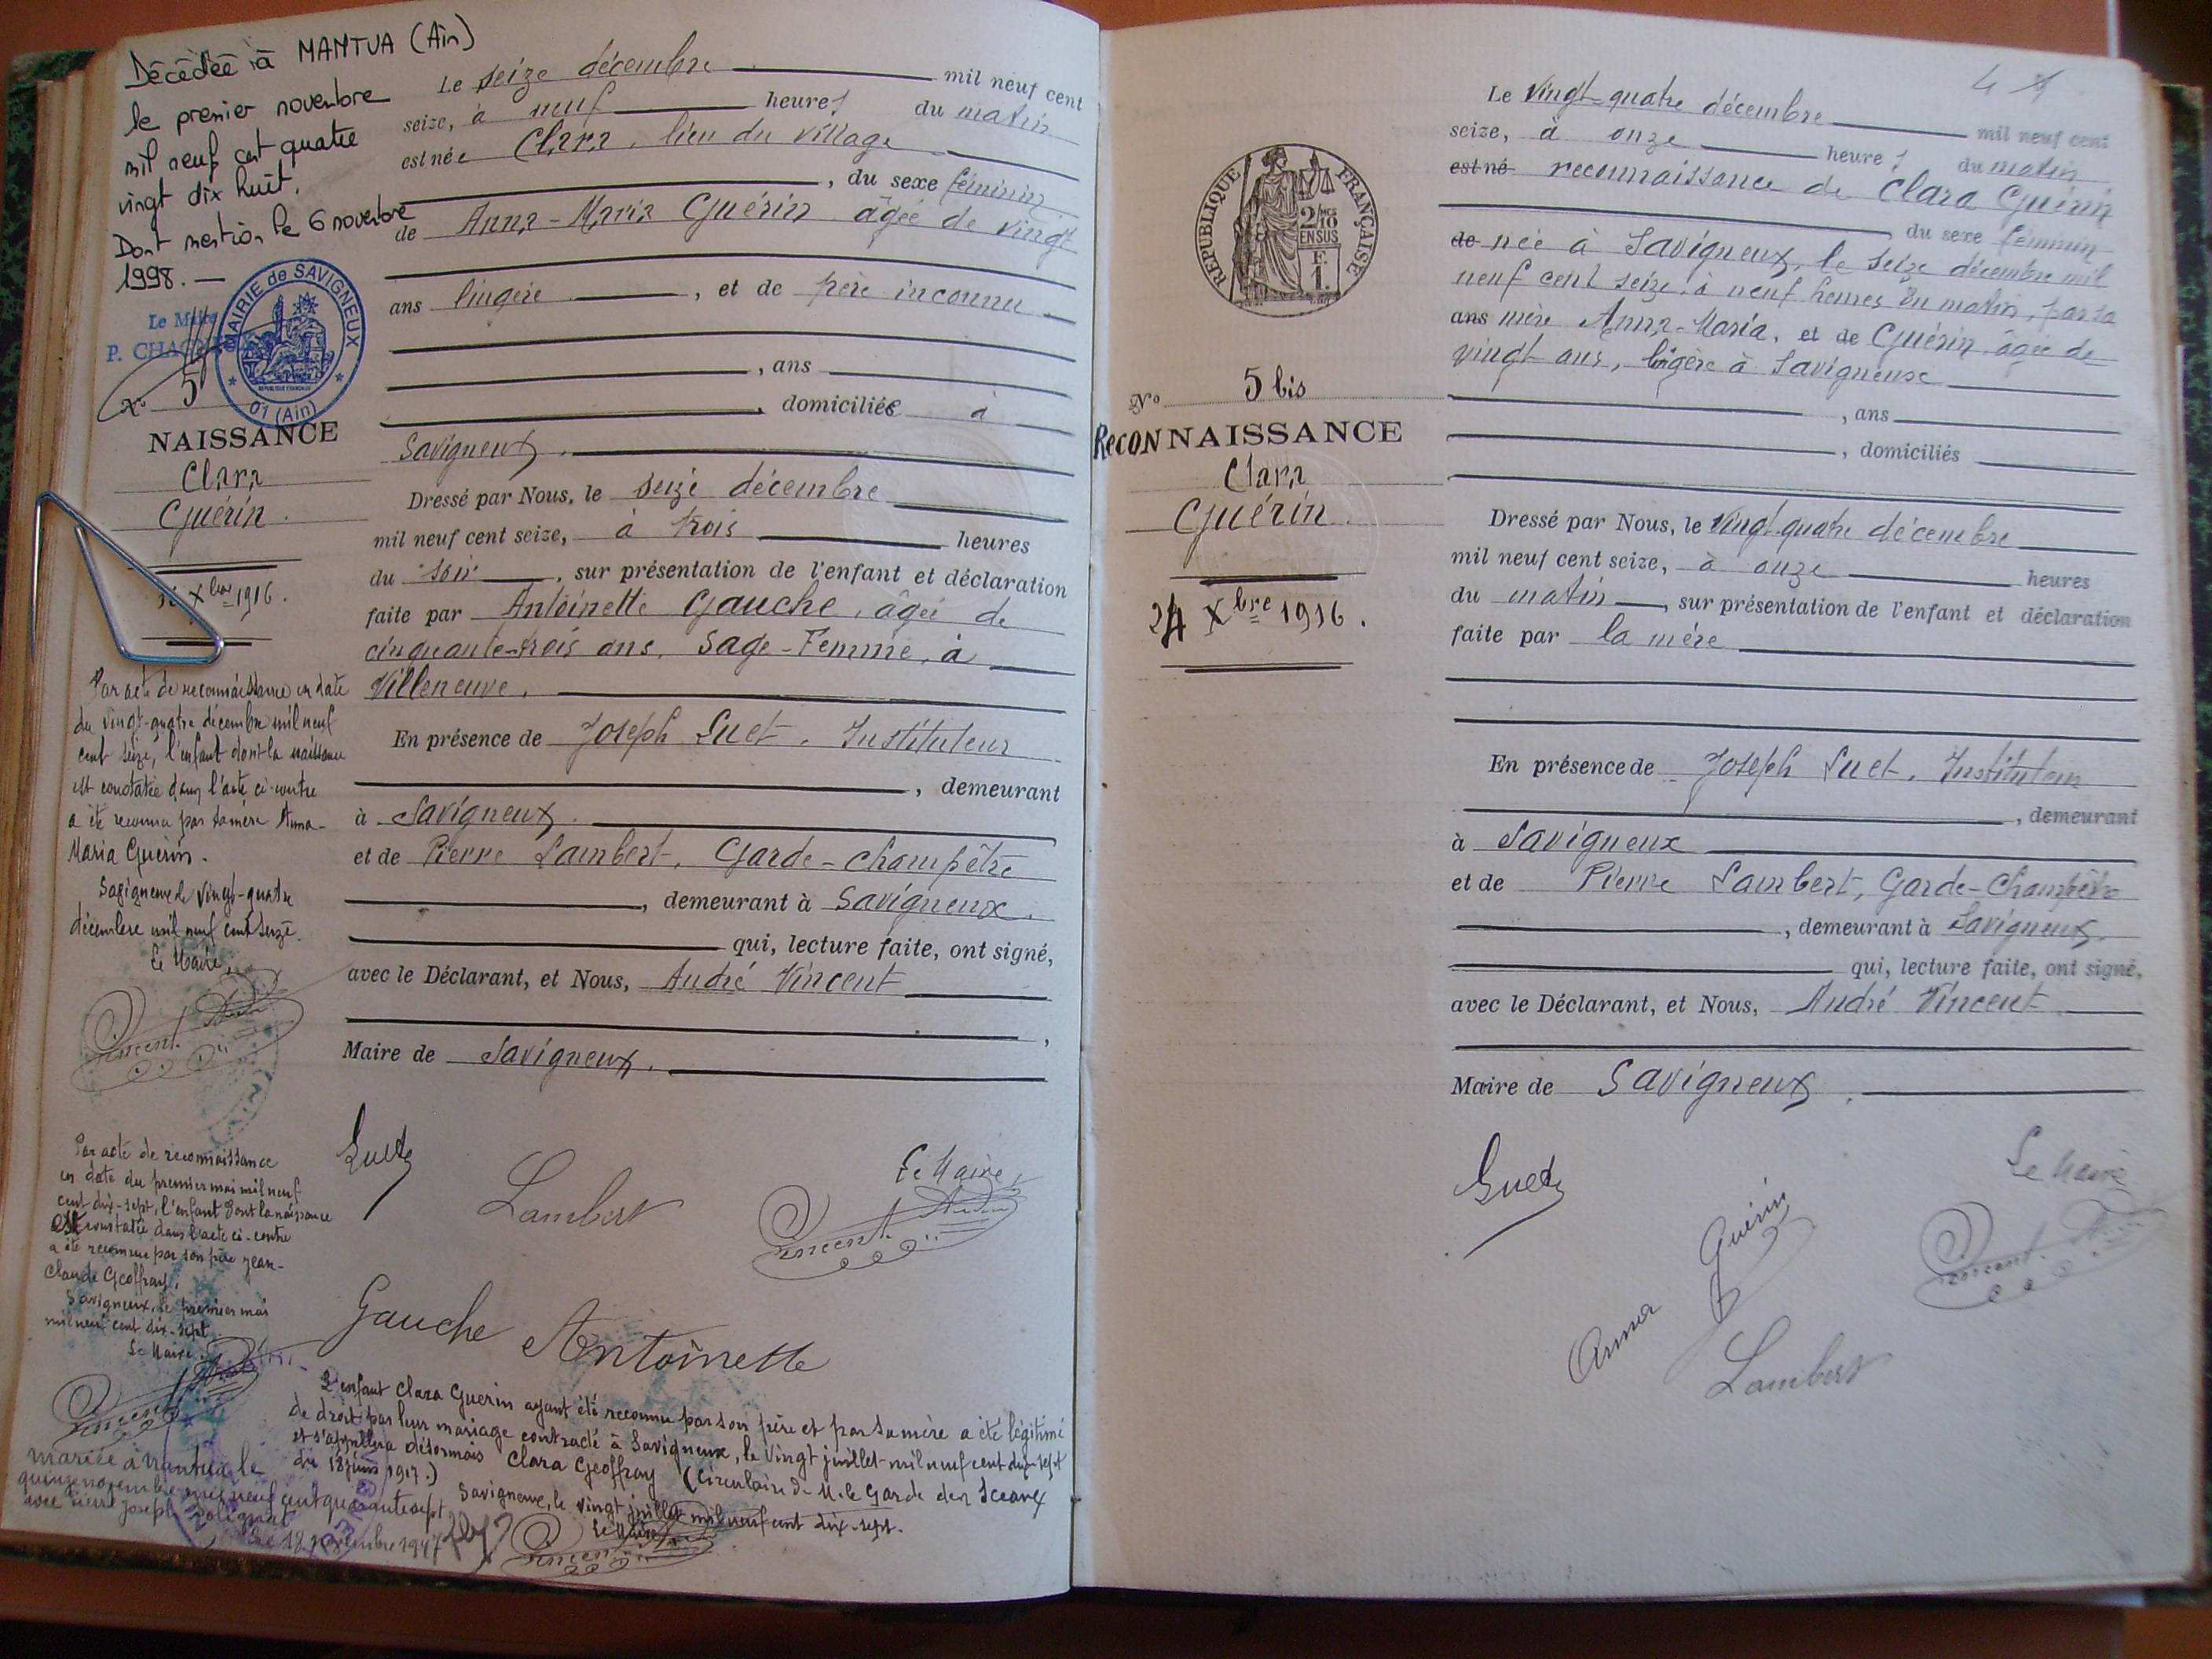 Décédée à MANTUA (Ain)
le premier novembre
mil neuf cent quatre
vingt dix huit.
Dont mention le 6 novembre
1998. —
Le Maire
P. CHAG
MAIRIE de SAVIGNEUX
RÉPUBLIQUE FRANÇAISE
01 (Ain)
No 5
NAISSANCE
Clara
Guérin.
Xbre 1916.
Par acte de reconnaissance en date
du vingt-quatre décembre mil neuf
cent seize, l'enfant dont la naissance
est constatée dans l'acte ci-contre
a été reconnu par sa mère Anna-
Maria Guerin.
Savigneux le vingt-quatre
décembre mil neuf cent seize.
Le Maire,
Vincent André
Par acte de reconnaissance
en date du premier mai mil neuf
cent dix-sept, l'enfant dont la naissance
est constatée dans l'acte ci-contre
a été reconnu par son père Jean-
Claude Geoffray.
Savigneux, le premier mai
mil neuf cent dix-sept
Le Maire.
Vincent
Mariée à Nantua le
quinze novembre mil neuf cent quarante sept
avec Pierre Joseph
Le seize décembre mil neuf cent
seize, à neuf heures du matin
est née Clara, lieu du village
, du sexe féminin
de Anna-Maria Guérin âgée de vingt
ans lingère , et de père inconnu
, ans
, domiciliée à
Savigneux.
Dressé par Nous, le seize décembre
mil neuf cent seize, à trois heures
du soir , sur présentation de l'enfant et déclaration
faite par Antoinette Gauche, âgée de
cinquante-trois ans, Sage-Femme, à
Villeneuve.
En présence de Joseph Suet, Instituteur
, demeurant
à Savigneux.
et de Pierre Lambert, Garde-champêtre
, demeurant à Savigneux.
qui, lecture faite, ont signé,
avec le Déclarant, et Nous, André Vincent
,
Maire de Savigneux.
Suet
Lambert
Le Maire,
Vincent André
Gauche Antoinette
L'enfant Clara Guerin ayant été reconnu par son père et par sa mère a été légitimé
de droit par leur mariage contracté à Savigneux, le vingt juillet mil neuf cent dix-sept
et s'appellera désormais Clara Geoffray (Circulaire de M. le Garde des Sceaux
du 12 juin 1917.)
Savigneux, le vingt juillet mil neuf cent dix-sept.
Le Maire
Vincent
4
RÉPUBLIQUE FRANÇAISE
2/10
EN SUS
F.
1.
No 5 bis
RECONNAISSANCE
Clara
Guérin.
24 Xbre 1916.
Le vingt-quatre décembre mil neuf cent
seize, à onze heures du matin
est né reconnaissance de Clara Guérin
du sexe féminin
de née à Savigneux, le seize décembre mil
neuf cent seize, à neuf heures du matin, par sa
ans mère Anna-Maria, et de Guérin âgée de
vingt ans, lingère à Savigneux
, ans
, domiciliés
Dressé par Nous, le vingt-quatre décembre
mil neuf cent seize, à onze heures
du matin , sur présentation de l'enfant et déclaration
faite par la mère
En présence de Joseph Suet, Instituteur
, demeurant
à Savigneux
et de Pierre Lambert, Garde-Champêtre
, demeurant à Savigneux.
qui, lecture faite, ont signé,
avec le Déclarant, et Nous, André Vincent
Maire de Savigneux.
Suet
Le Maire
Anna Guérin
Vincent
Lambert